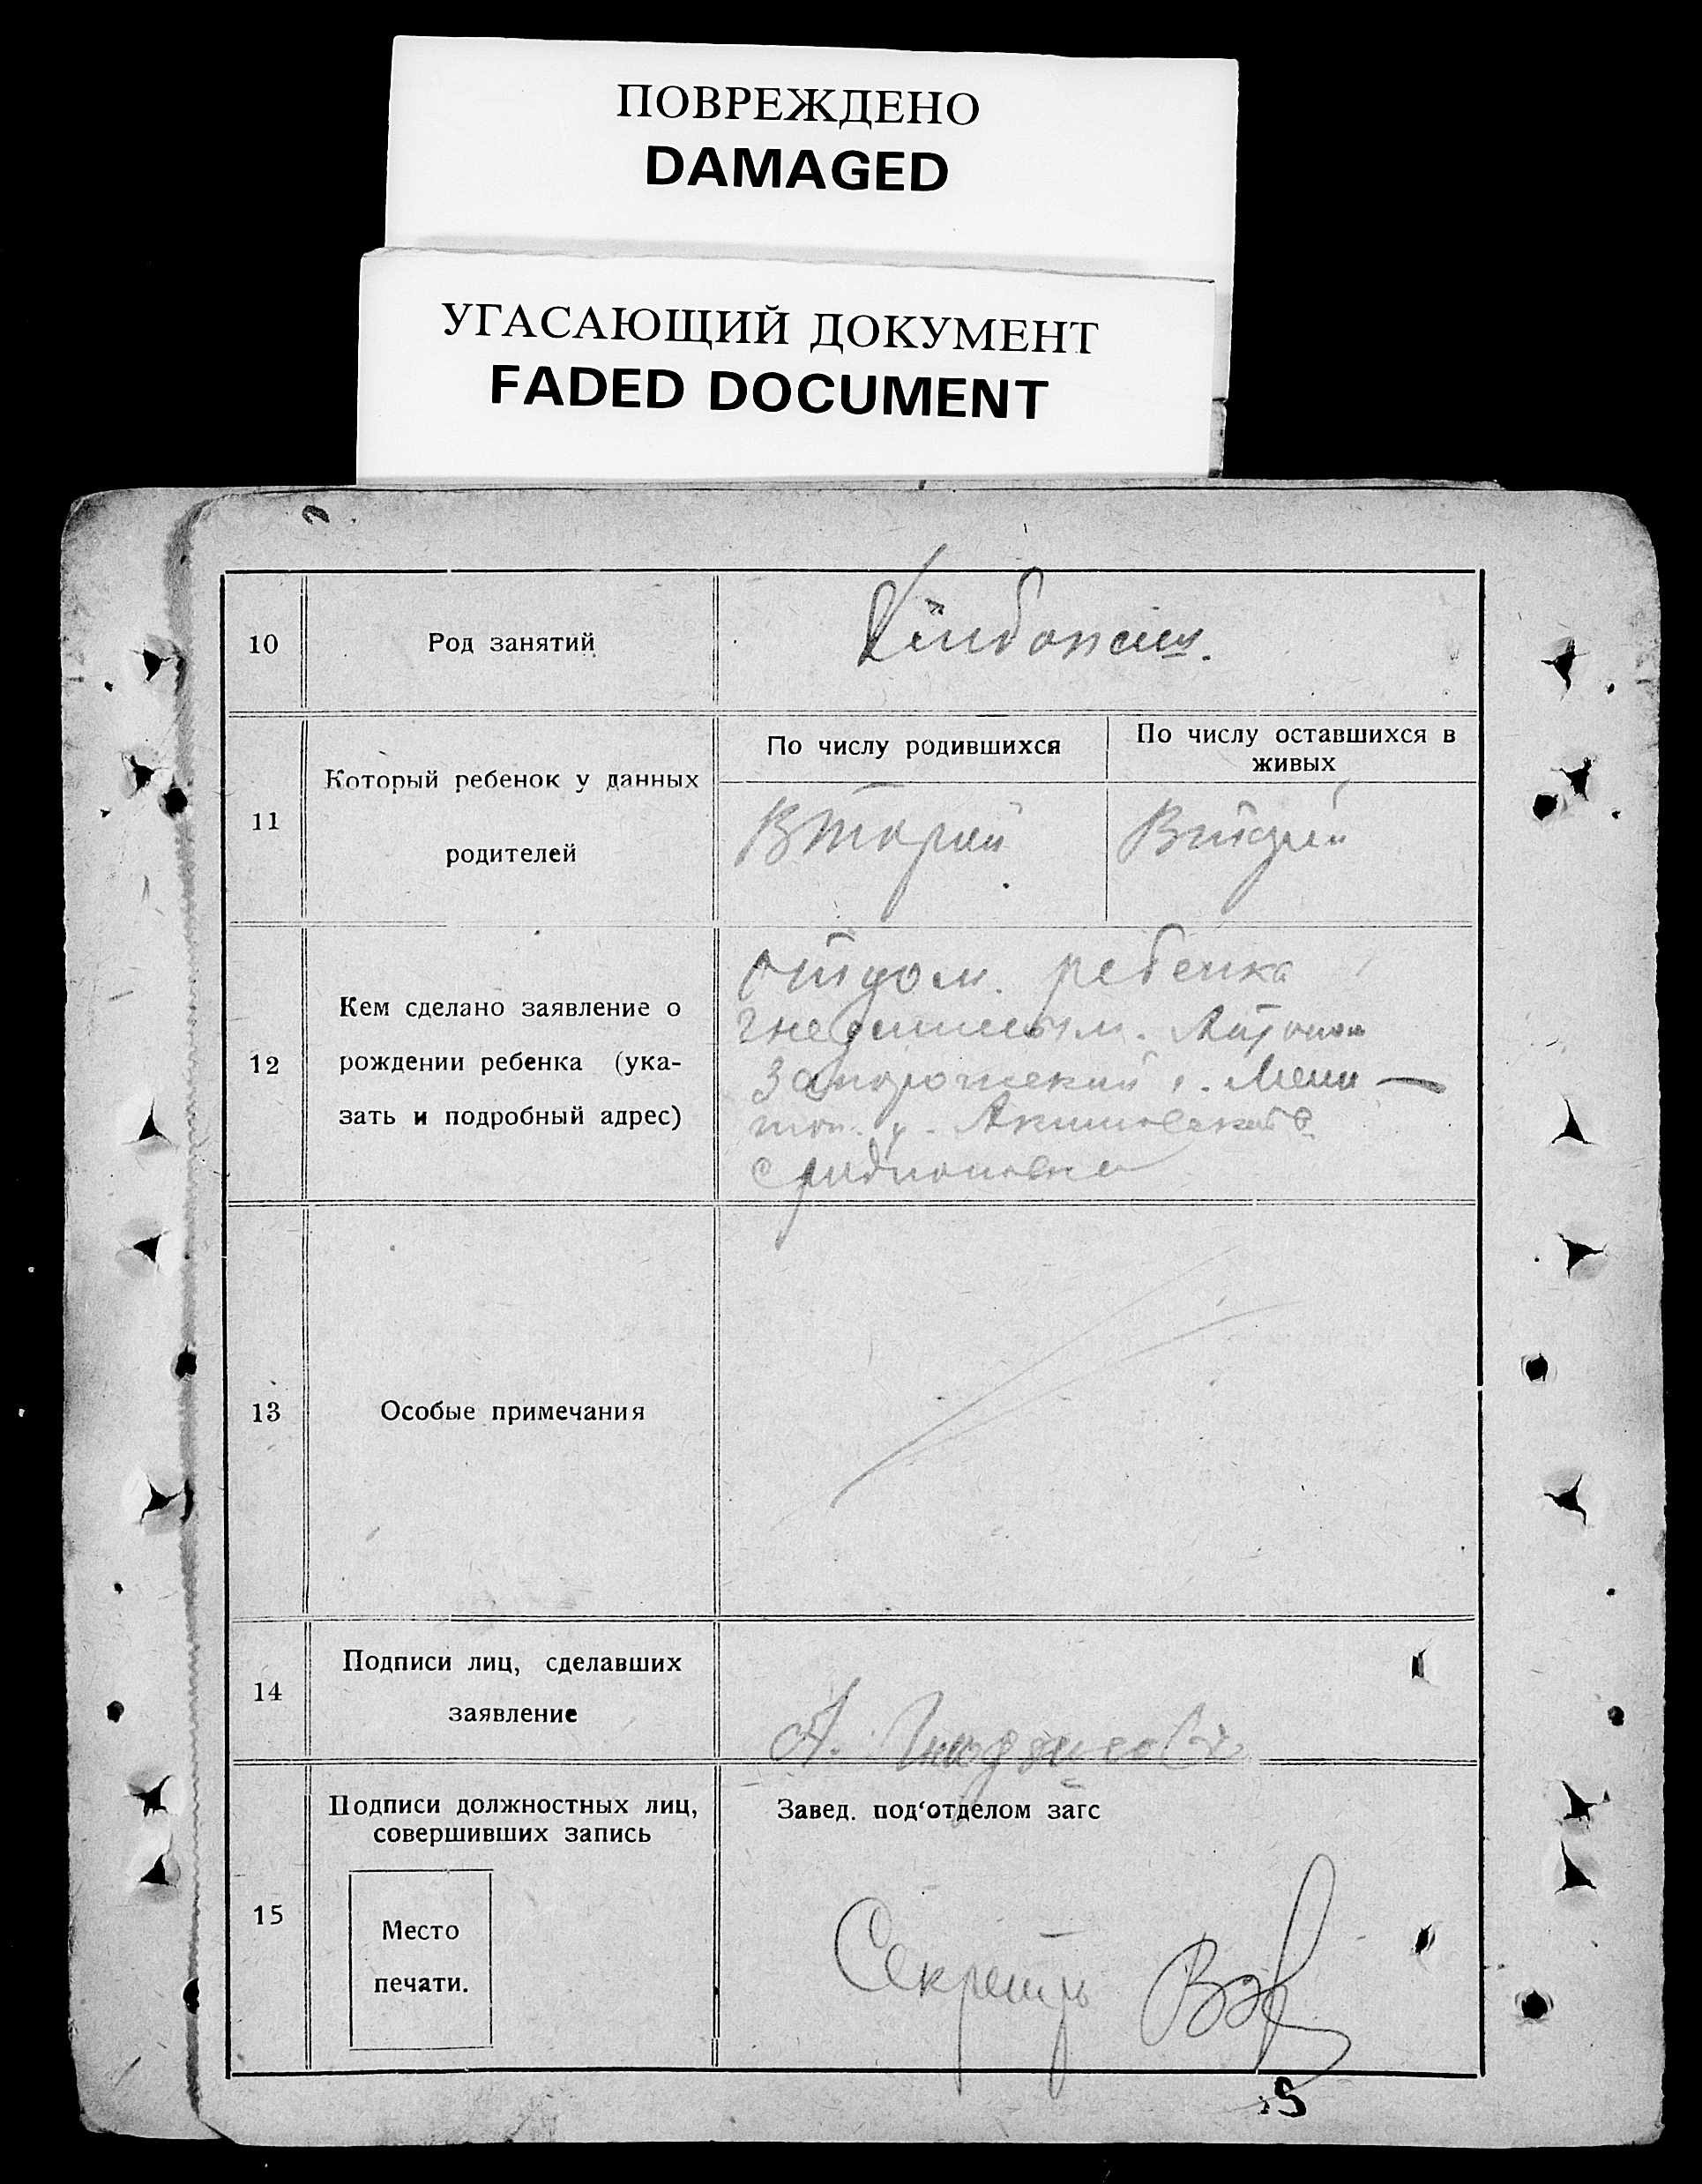 ПОВРЕЖДЕНО
DAMAGED
УГАСАЮЩИЙ ДОКУМЕНТ
FADED DOCUMENT
10
Род занятий
11
Который ребенок у данных
родителей
По числу родившихся
По числу оставшихся в
живых
Второй
Второй
12
Кем сделано заявление о
рождении ребенка (ука-
зать и подробный адрес)
отцом ребенка
Запорожский
Акимовский
с
13
Особые примечания
14
Подписи лиц, сделавших
заявление
А.
15
Подписи должностных лиц,
совершивших запись
Место
печати.
Завед. под‘отделом загс
Секретрь